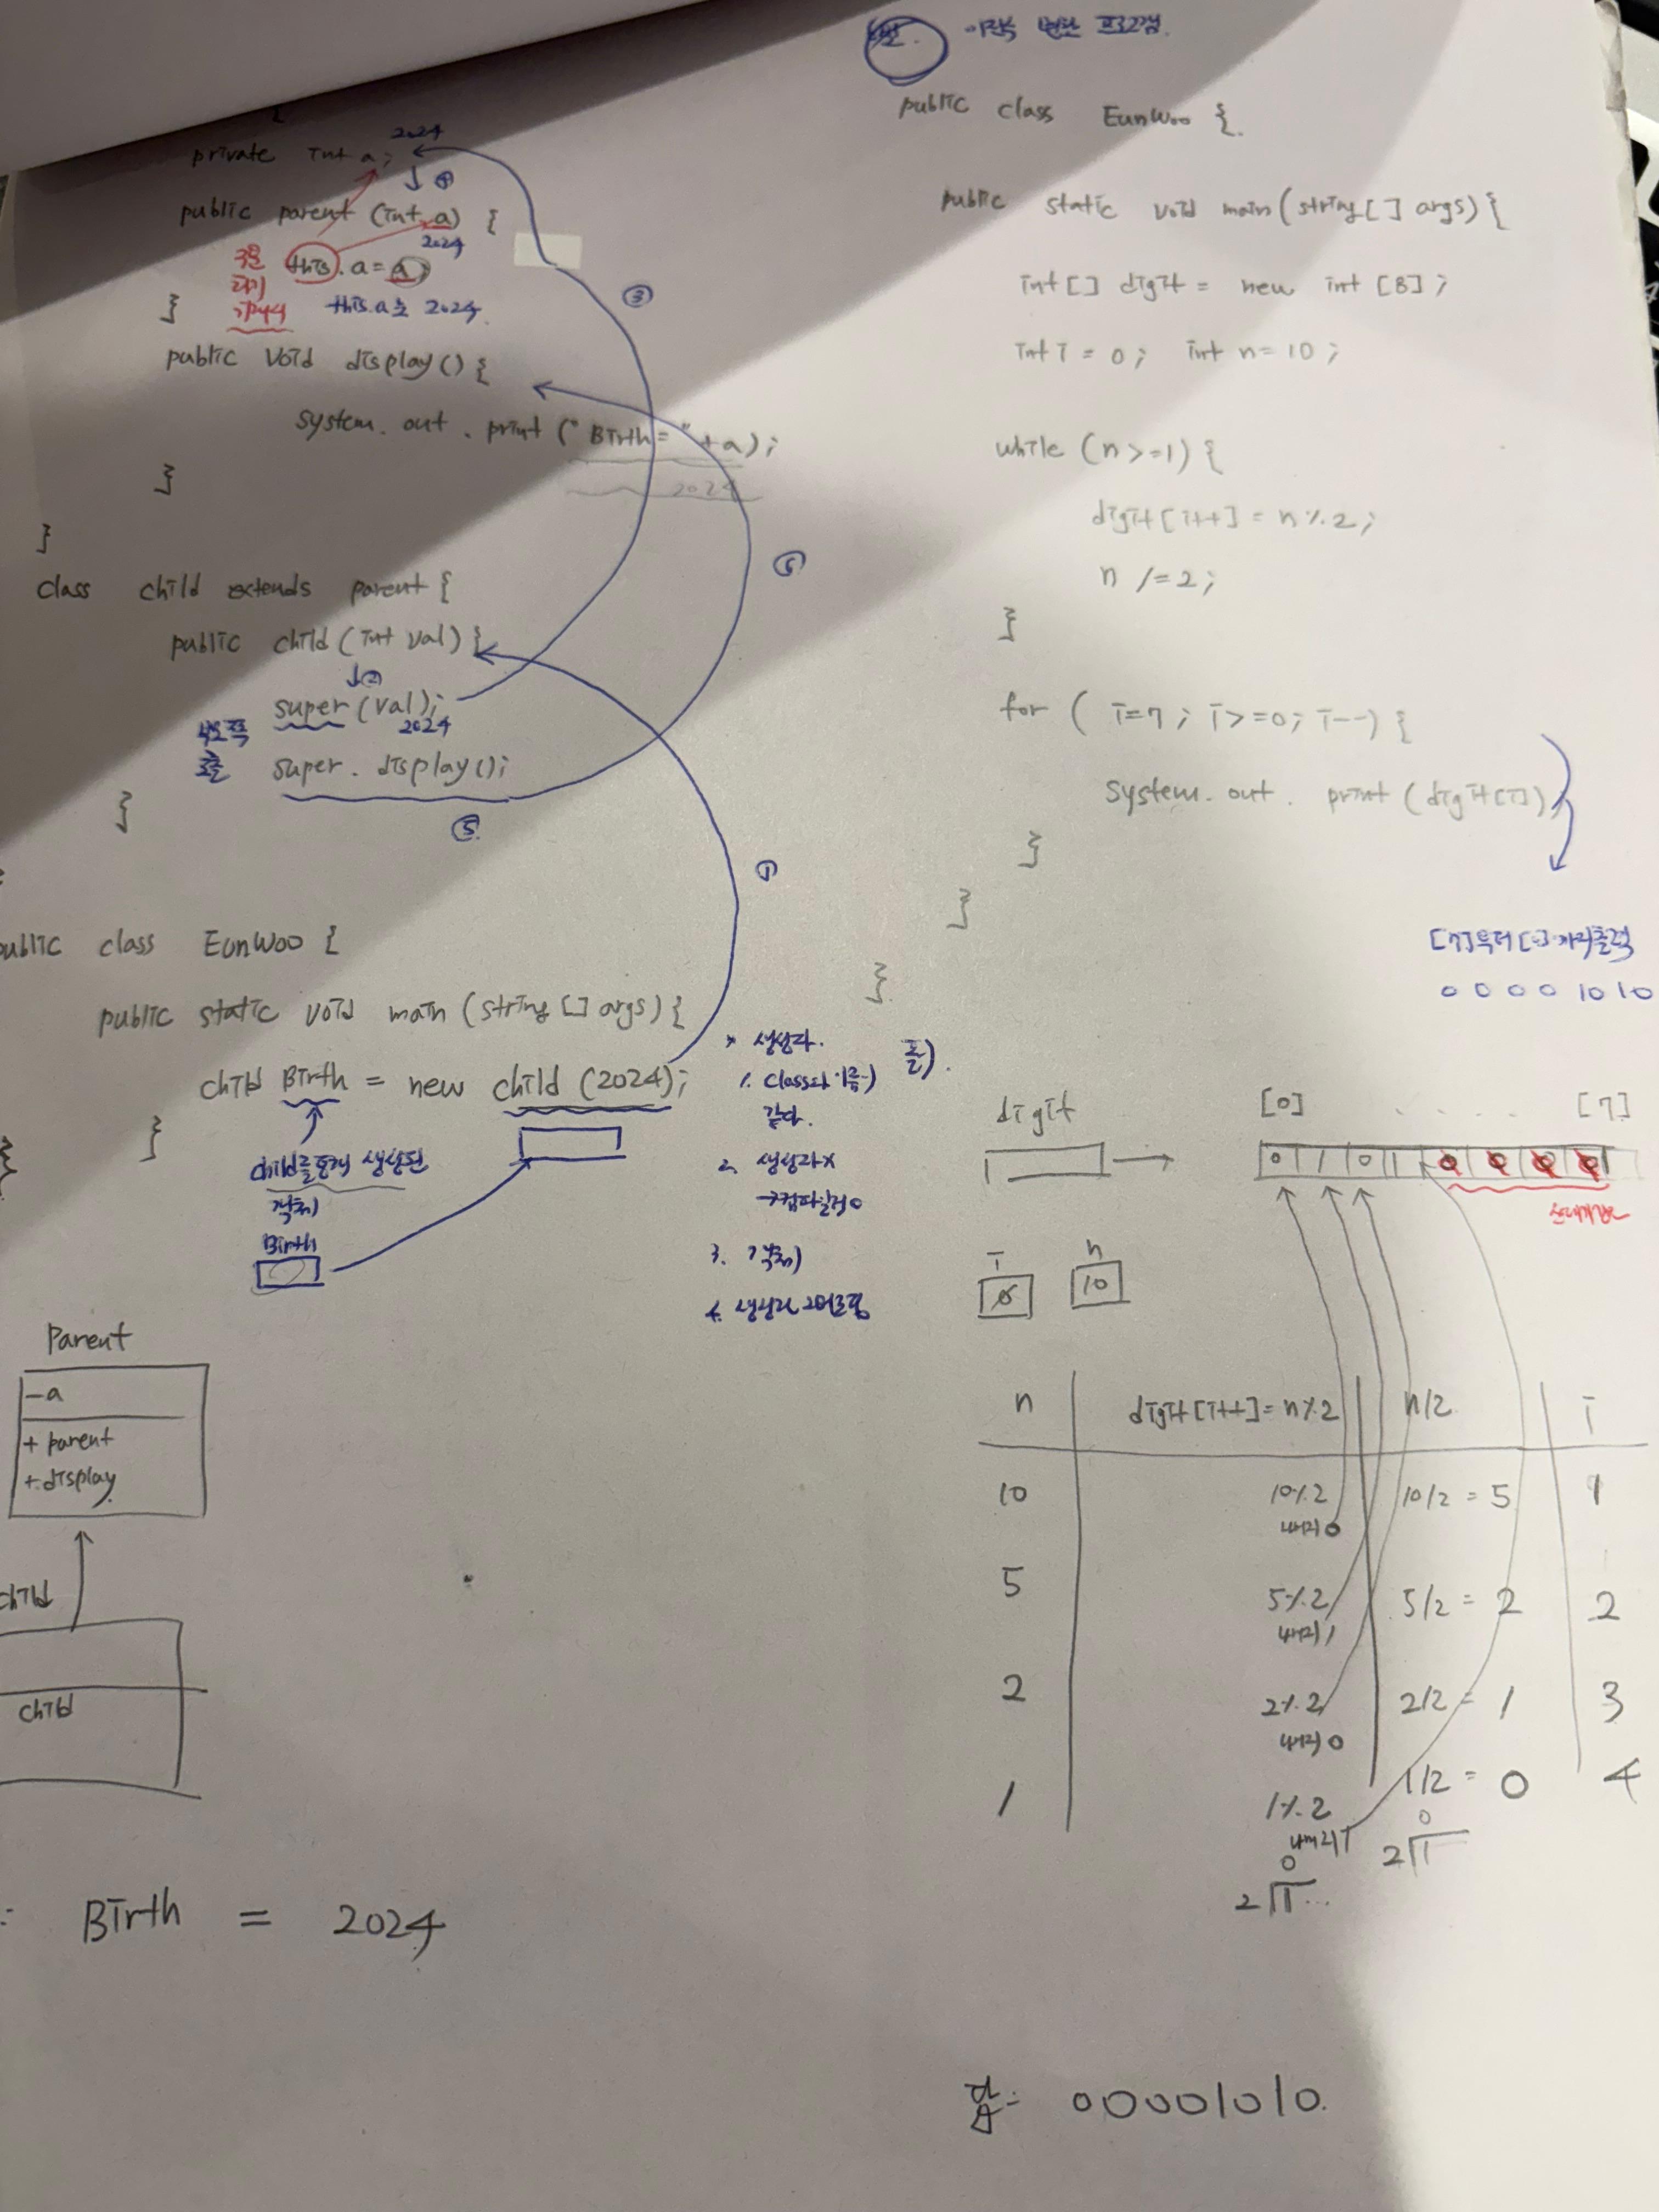 {
2024
private int a;
↓ ④
public parent (int a) {
2024
this. a = a;
this.a는 2024.
}
public void display() {
system. out. print ("Birth = " + a);
2024
}
}
class child extends parent {
public child (int val) {
↓②
super (val);
2024
super. display();
}
③
⑥
⑤
①
public class EunWoo {
public static void main (string [] args) {
child Birth = new child (2024);
}
child를 통해 생성된
객체
Birth
* 생성자.
1. class와 이름이
같다.
2. 생성자x
→컴파일러o
3. 객체
Parent
-a
+ parent
+ display
child
child
Birth = 2024
이진수 변환 프로그램.
public class EunWoo {
public static void main (string [] args) {
int [] digit = new int [8];
int i = 0; int n = 10;
while (n >= 1) {
digit [i++] = n % 2;
n /= 2;
}
for ( i=7; i>=0; i--) {
system. out. print (digit [i])
}
}
}
[7]부터 [0]까지 출력
0 0 0 0 1 0 1 0
풀)
digit [0] . . . . . [7]
0 1 0 1 0 0 0 0
i n
0 10
n digit [i++] = n%2 n/2 i
10 10%2 10/2 = 5 1
나머지 0
5 5%2 5/2 = 2 2
나머지 1
2 2%2 2/2 = 1 3
나머지 0
1 1%2 1/2 = 0 4
나머지 1
0
2 1
0
2 1 ...
답: 00001010.